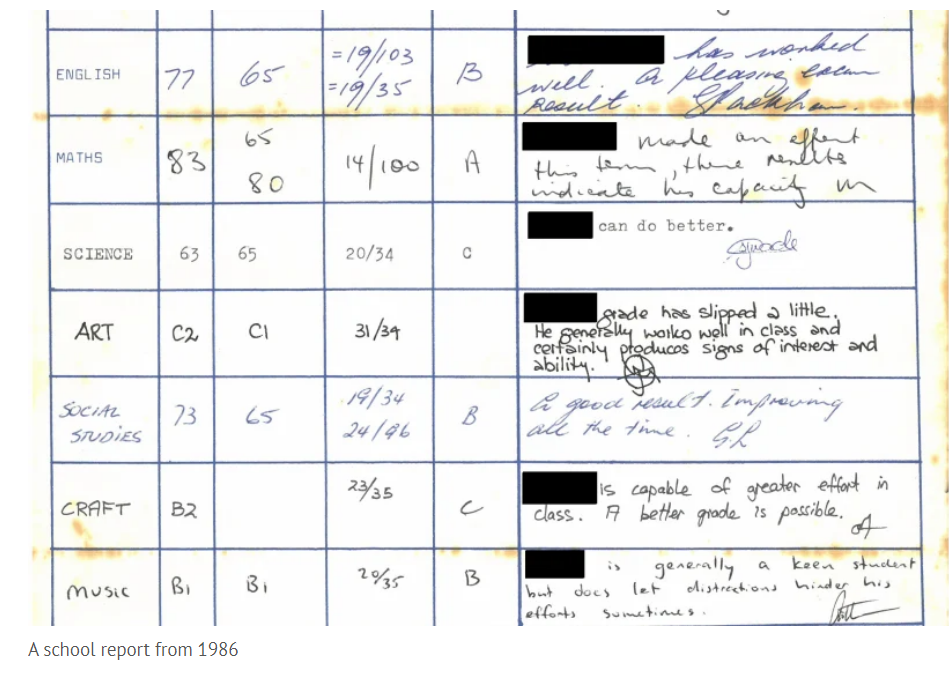 ENGLISH 77 65 =19/103 =19/35 B
has worked
well. A pleasing exam
result.
MATHS 83 65 80 14/100 A
made an effort
this term, these results
indicate his capacity in
SCIENCE 63 65 20/34 C
can do better.
ART C2 C1 31/34
grade has slipped a little.
He generally works well in class and
certainly produces signs of interest and
ability.
SOCIAL STUDIES 73 65 19/34 24/96 B
A good result. Improving
all the time. GL
CRAFT B2 23/35 C
is capable of greater effort in
class. A better grade is possible.
MUSIC B1 B1 20/35 B
is generally a keen student
but does let distractions hinder his
efforts sometimes.
A school report from 1986